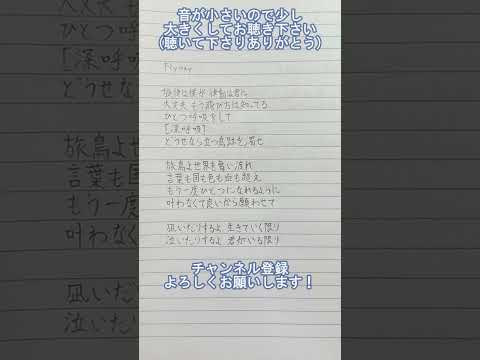 音が小さいので少し
大きくしてお聴き下さい
(聴いて下さりありがとう)
Fly away
大丈夫 もう飛び方は知ってる
ひとつ呼吸をして
[深呼吸]
どうせなら立つ鳥跡を濁せ
旅鳥よ世界を奪い流れ
言葉も国も色も血も超え
もう一度ひとつになれるように
叶わなくて良いから願わせて
凪いだりするよ 生きていく限り
泣いたりするよ 君がいる限り
チャンネル登録
よろしくお願いします!